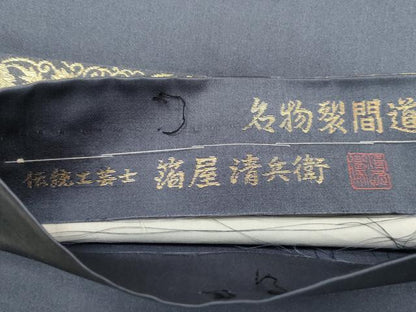 名物裂間道
伝統工芸士 箔屋清兵衛